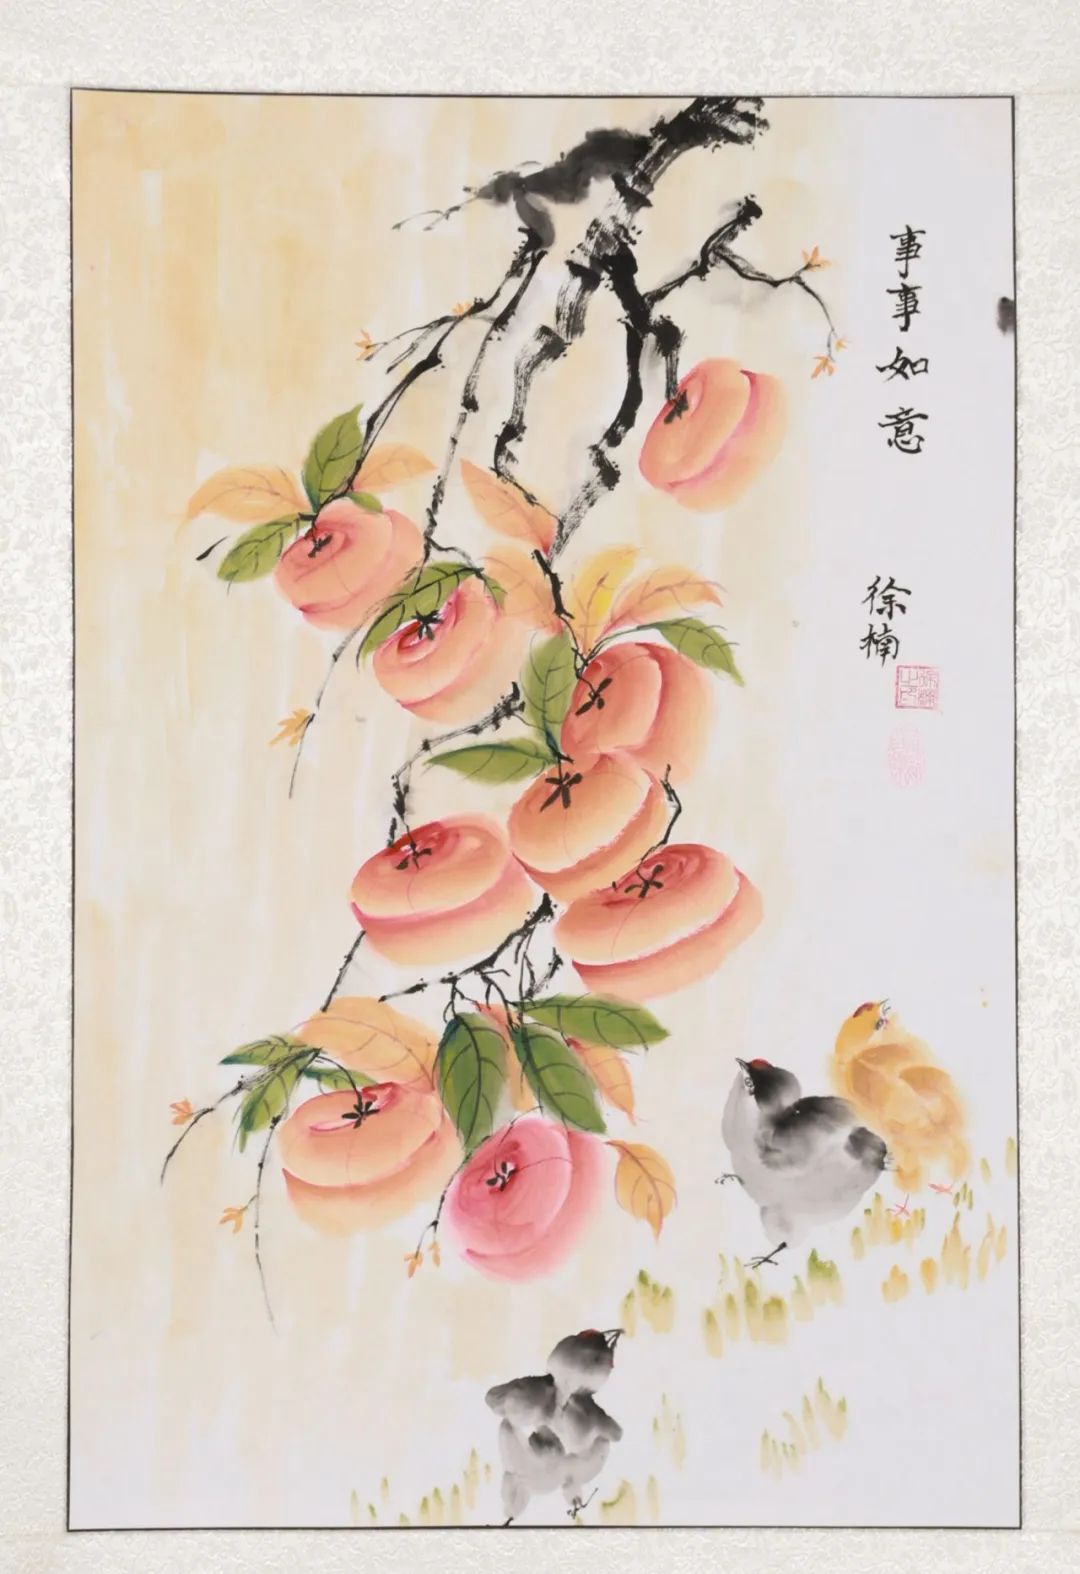 事事如意
徐楠